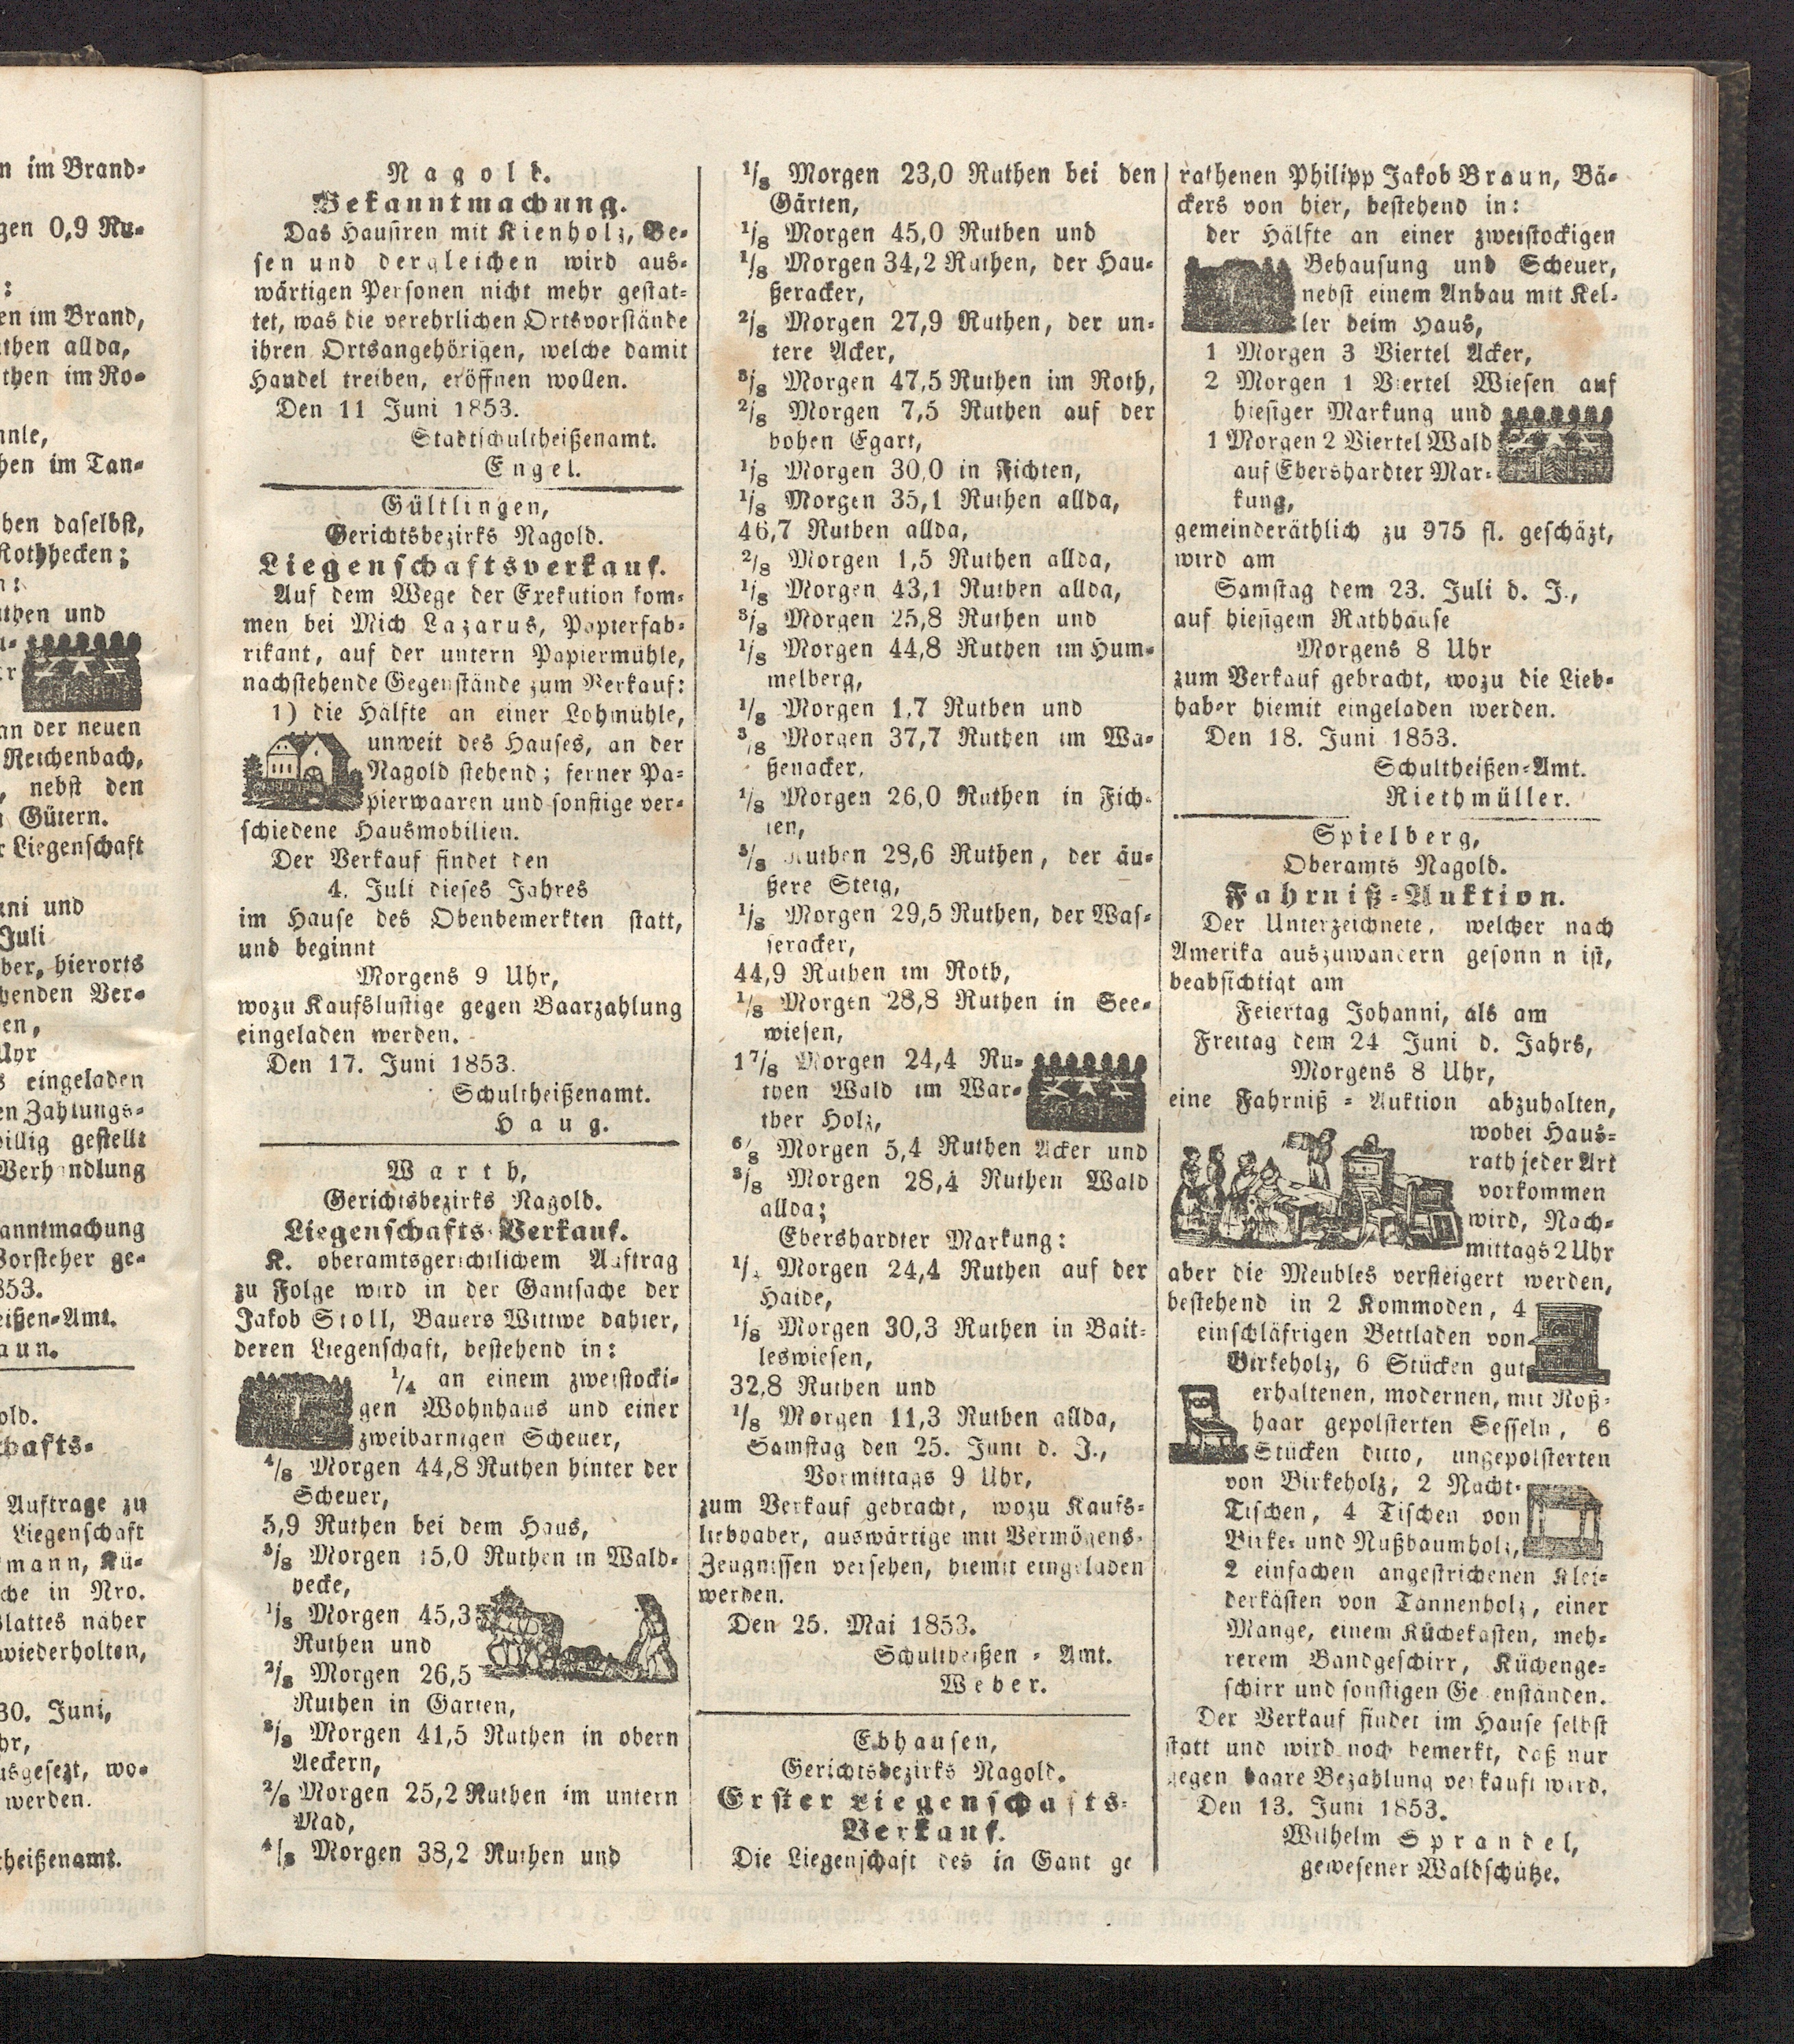 n im Brand-
gen 0,9 Ru-
:
en im Brand,
then allda,
then im Ro-
nnle,
hen im Tan-
hen daselbst,
Rothhecken;
n:
uthen und
nn der neuen
Reichenbach,
, nebst den
n Gütern.
r Liegenschaft
uni und
Juli
ber, hierorts
henden Ver-
en,
Uhr
s eingeladen
en Zahlungs-
billig gestellt
Verhandlung
anntmachung
Vorsteher ge-
853.
eißen-Amt.
aun.
old.
chafts-
Auftrage zu
Liegenschaft
mann, Kü-
che in Nro.
Blattes näher
wiederholten,
30. Juni,
hr,
usgesezt, wo-
werden.
theißenamt.
Nagold.
Bekanntmachung.
Das Hausiren mit Kienholz, Be-
sen und dergleichen wird aus-
wärtigen Personen nicht mehr gestat-
tet, was die verehrlichen Ortsvorstände
ihren Ortsangehörigen, welche damit
Handel treiben, eröffnen wollen.
Den 11 Juni 1853.
Stadtschultheißenamt.
Engel.
Gültlingen,
Gerichtsbezirks Nagold.
Liegenschaftsverkauf.
Auf dem Wege der Exekution kom-
men bei Mich Lazarus, Papierfab-
rikant, auf der untern Papiermühle,
nachstehende Gegenstände zum Verkauf:
1) die Hälfte an einer Lohmühle,
unweit des Hauses, an der
Nagold stehend; ferner Pa-
pierwaaren und sonstige ver-
schiedene Hausmobilien.
Der Verkauf findet den
4. Juli dieses Jahres
im Hause des Obenbemerkten statt,
und beginnt
Morgens 9 Uhr,
wozu Kaufslustige gegen Baarzahlung
eingeladen werden.
Den 17. Juni 1853.
Schultheißenamt.
Haug.
Warth,
Gerichtsbezirks Nagold.
Liegenschafts-Verkauf.
K. oberamtsgerichtlichem Auftrag
zu Folge wird in der Gantsache der
Jakob Stoll, Bauers Wittwe dahier,
deren Liegenschaft, bestehend in:
1/4 an einem zweistocki-
gen Wohnhaus und einer
zweibarnigen Scheuer,
4/8 Morgen 44,8 Ruthen hinter der
Scheuer,
5,9 Ruthen bei dem Haus,
3/8 Morgen 15,0 Ruthen in Wald-
hecke,
1/8 Morgen 45,3
Ruthen und
2/8 Morgen 26,5
Ruthen in Garten,
3/8 Morgen 41,5 Ruthen in obern
Aeckern,
2/8 Morgen 25,2 Ruthen im untern
Mad,
4/8 Morgen 38,2 Ruthen und
1/8 Morgen 23,0 Ruthen bei den
Gärten,
1/8 Morgen 45,0 Ruthen und
1/8 Morgen 34,2 Ruthen, der Hau-
ßeracker,
2/8 Morgen 27,9 Ruthen, der un-
tere Acker,
3/8 Morgen 47,5 Ruthen im Roth,
2/8 Morgen 7,5 Ruthen auf der
hohen Egart,
1/8 Morgen 30,0 in Fichten,
1/8 Morgen 35,1 Ruthen allda,
46,7 Ruthen allda,
2/8 Morgen 1,5 Ruthen allda,
1/8 Morgen 43,1 Ruthen allda,
3/8 Morgen 25,8 Ruthen und
1/8 Morgen 44,8 Ruthen im Hum-
melberg,
1/8 Morgen 1,7 Ruthen und
3/8 Morgen 37,7 Ruthen im Wa-
ßenacker,
1/8 Morgen 26,0 Ruthen in Fich-
ten,
3/8 Ruthen 28,6 Ruthen, der äu-
ßere Steig,
1/8 Morgen 29,5 Ruthen, der Was-
seracker,
44,9 Ruthen im Roth,
1/8 Morgen 28,8 Ruthen in See-
wiesen,
1 7/8 Morgen 24,4 Ru-
then Wald im War-
ther Holz,
6/8 Morgen 5,4 Ruthen Acker und
3/8 Morgen 28,4 Ruthen Wald
allda;
Ebershardter Markung:
Morgen 24,4 Ruthen auf der
Haide,
1/8 Morgen 30,3 Ruthen in Bait-
leswiesen,
32,8 Ruthen und
1/8 Morgen 11,3 Ruthen allda,
Samstag den 25. Juni d. J.,
Vormittags 9 Uhr,
zum Verkauf gebracht, wozu Kaufs-
liebhaber, auswärtige mit Vermögens-
Zeugnissen versehen, hiemit eingeladen
werden.
Den 25. Mai 1853.
Schultheißen-Amt.
Weber.
Ebhausen,
Gerichtsbezirks Nagold.
Erster Liegenschafts-
Verkauf.
Die Liegenschaft des in Gant ge
rathenen Philipp Jakob Braun, Bä-
ckers von hier, bestehend in:
der Hälfte an einer zweistockigen
Behausung und Scheuer,
nebst einem Anbau mit Kel-
ler beim Haus,
1 Morgen 3 Viertel Acker,
2 Morgen 1 Viertel Wiesen auf
hiesiger Markung und
1 Morgen 2 Viertel Wald
auf Ebershardter Mar-
kung,
gemeinderäthlich zu 975 fl. geschäzt,
wird am
Samstag dem 23. Juli d. J.,
auf hiesigem Rathhause
Morgens 8 Uhr
zum Verkauf gebracht, wozu die Lieb-
haber hiemit eingeladen werden.
Den 18. Juni 1853.
Schultheißen-Amt.
Riethmüller.
Spielberg,
Oberamts Nagold.
Fahrniß-Auktion.
Der Unterzeichnete, welcher nach
Amerika auszuwandern gesonn n ist,
beabsichtigt am
Feiertag Johanni, als am
Freitag dem 24 Juni d. Jahrs,
Morgens 8 Uhr,
eine Fahrniß-Auktion abzuhalten,
wobei Haus-
rath jeder Art
vorkommen
wird, Nach-
mittags 2 Uhr
aber die Meubles versteigert werden,
bestehend in 2 Kommoden, 4
einschläfrigen Bettladen von
Birkeholz, 6 Stücken gut
erhaltenen, modernen, mit Roß-
haar gepolsterten Sesseln, 6
Stücken ditto, ungepolsterten
von Birkeholz, 2 Nacht-
Tischen, 4 Tischen von
Birke- und Nußbaumholz,
2 einfachen angestrichenen Klei-
derkästen von Tannenholz, einer
Mange, einem Küchekasten, meh-
rerem Bandgeschirr, Küchenge-
schirr und sonstigen Ge enständen.
Der Verkauf findet im Hause selbst
statt und wird noch bemerkt, daß nur
gegen baare Bezahlung verkauft wird.
Den 13. Juni 1853.
Wilhelm Sprandel,
gewesener Waldschütze.